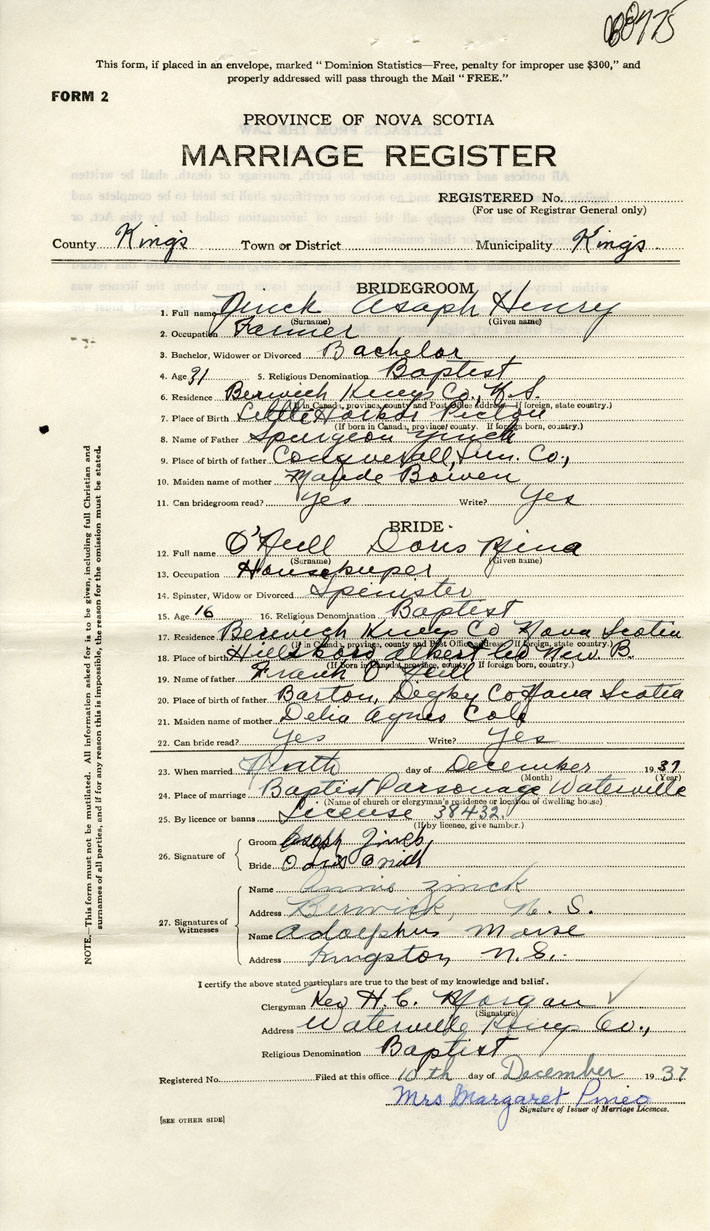 This form, if placed in an envelope, marked "Dominion Statistics—Free, penalty for improper use $300," and
properly addressed will pass through the Mail "FREE."
FORM 2
PROVINCE OF NOVA SCOTIA
MARRIAGE REGISTER
REGISTERED No.
(For use of Registrar General only)
County Kings Town or District Municipality Kings
BRIDEGROOM
1. Full name Zinck Asaph Henry
(Surname) (Given name)
2. Occupation Farmer
3. Bachelor, Widower or Divorced Bachelor
4. Age 31 5. Religious Denomination Baptist
6. Residence Berwick Kings Co., N.S.
(If in Canada, province, county and Post Office address. If foreign, state country.)
7. Place of Birth Little Harbor Pictou
(If born in Canada, province, county. If foreign born, country.)
8. Name of Father Spurgeon Zinck
9. Place of birth of father Lun. Co.,
10. Maiden name of mother Bowen
11. Can bridegroom read? Yes Write? Yes
BRIDE
12. Full name O'Neill Doris
(Surname) (Given name)
13. Occupation Housekeeper
14. Spinster, Widow or Divorced Spinister
15. Age 16 16. Religious Denomination Baptist
17. Residence Berwick Kings Co Nova Scotia
(If in Canada, province, county and Post Office address. If foreign, state country.)
18. Place of birth Hillsboro Albert Co New B.
(If born in Canada, province, county. If foreign born, country.)
19. Name of father Frank O'Neill
20. Place of birth of father Barton, Digby Co, Nova Scotia
21. Maiden name of mother Delia Agnes
22. Can bride read? Yes Write? Yes
23. When married day of December 1937
(Month) (Year)
24. Place of marriage Baptist Parsonage Waterville
(Name of church or clergyman's residence or location of dwelling house)
25. By licence or banns License 38432.
(If by licence, give number.)
26. Signature of
Groom Asaph Zinck
Bride
27. Signatures of Witnesses
Name Zinck
Address Berwick, N. S.
Name Adolphus Morse
Address Kingston N.S.
I certify the above stated particulars are true to the best of my knowledge and belief.
Clergyman Rev H. C. Morgan
(Signature)
Address Waterville Kings Co.,
Religious Denomination Baptist
Registered No. Filed at this office 10th day of December 1937
Mrs Margaret Pineo
Signature of Issuer of Marriage Licences.
[SEE OTHER SIDE]
NOTE.—This form must not be mutilated. All information asked for is to be given, including full Christian and
surnames of all parties, and if for any reason this is impossible, the reason for the omission must be stated.